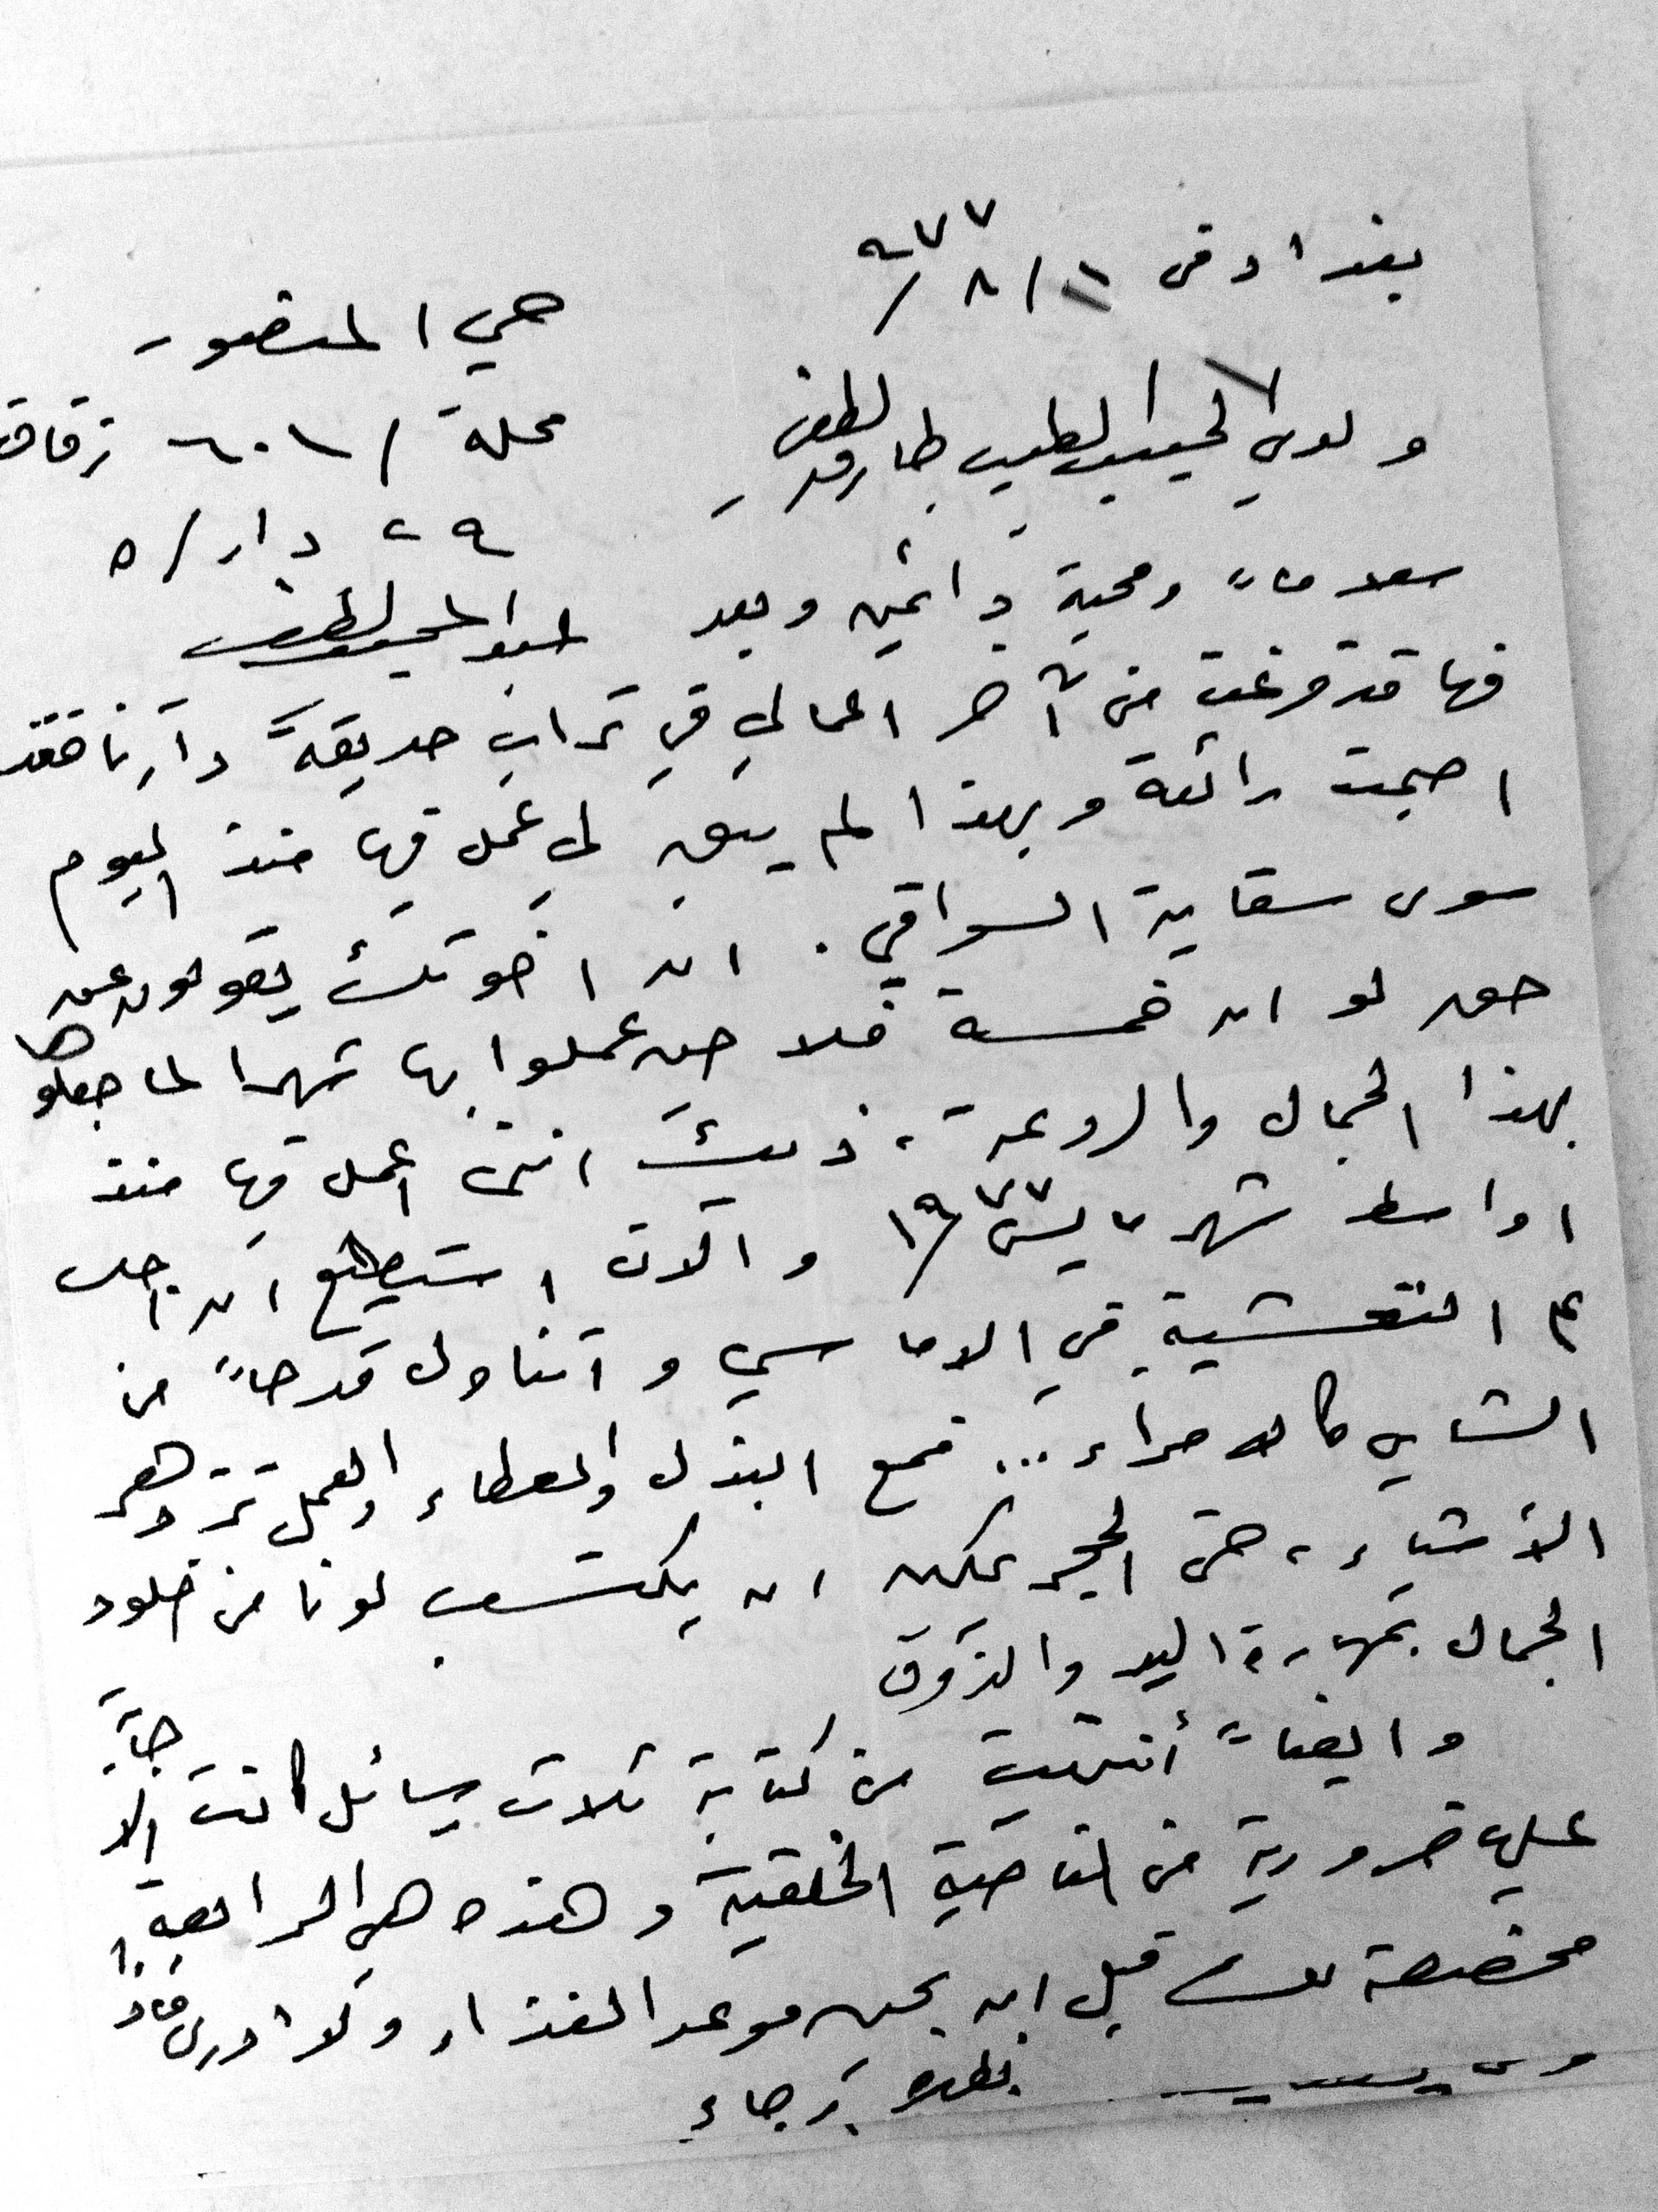 بغداد في ١١/٨/٩٧٧
حي المنصور
ولدي الحبيب الطبيب طارق لطفي
محلة /٦٠١ زقاق
٢٩ دار/٥
سلاماً ومحبة دائمين وبعد
عبد المجيد لطفي
فها قد فرغت من آخر اعمالي في تراب حديقة دارنا فقد
اصبحت رائعة وبهذا لم يبق لي عمل فيها منذ اليوم
سوى سقاية السواقي . ان اخوتك يقولون عن
حق لو ان خمسة فلاحين عملوا بها شهرا لما جعلوها
بهذا الجمال والروعة ، ذلك انني اعمل فيها منذ
اواسط شهر مايس ١٩٧٧ والآن استطيع ان اجلس
التعشية في الاماسي و اتناول قدحاً من
الشاي كالامراء ... فمع البذل والعطاء والعمل تزدهر
الأشياء ، حتى الحجر يمكن ان يكتسب لونا من خلود
الجمال بمهارة اليد والذوق
وايضاً أنتهيت من كتابة ثلاث رسائل كانت الاجابة
عليها ضرورية من الناحية الخلقية وهذه هي الرابعة
مخصصة لك قبل ان يحين موعد الغذاء ولا ادري ماذا
بطلا رجاء